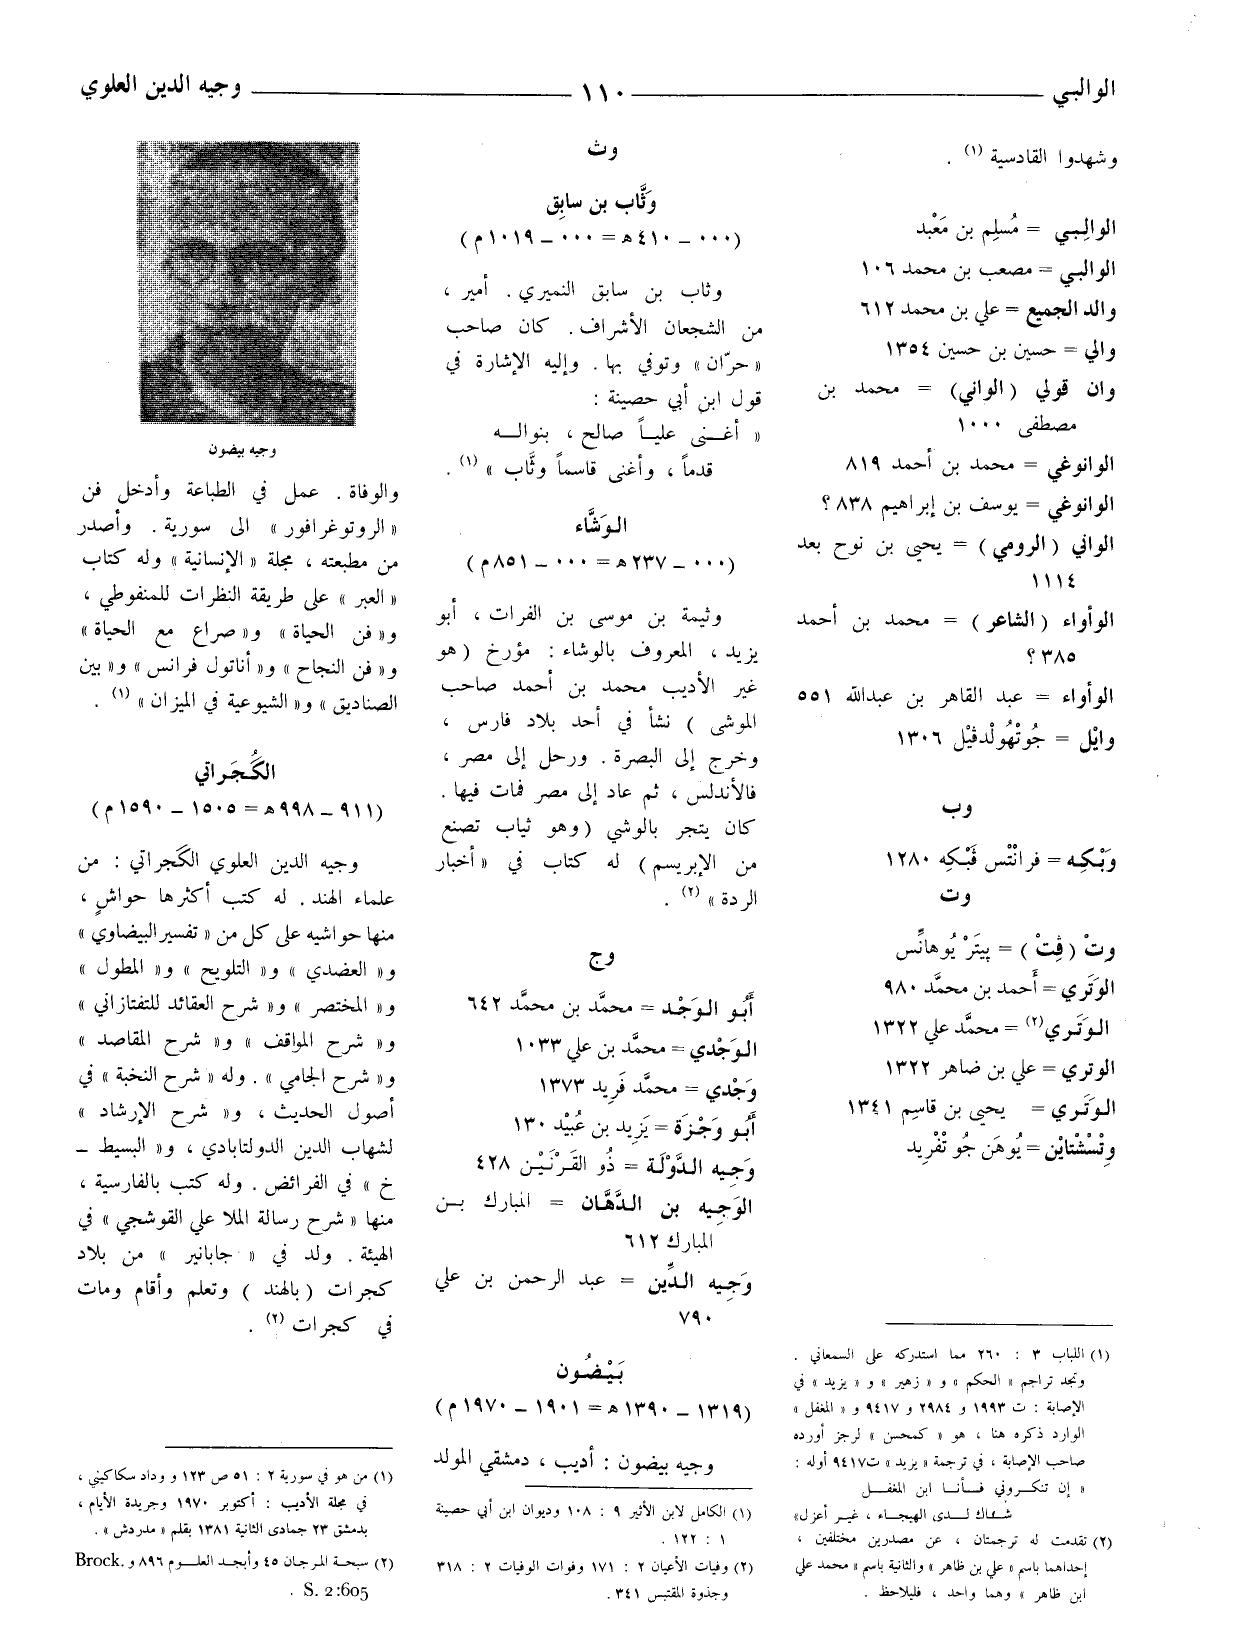 الوالبي
١١٠
وجيه الدين العلوي
وشهدوا القادسية (١) .
الوالِبي = مُسلِم بن مَعْبد
الوالبي = مصعب بن محمد ١٠٦
والد الجميع = علي بن محمد ٦١٢
والي = حسين بن حسين ١٣٥٤
وان قولي (الواني) = محمد بن
مصطفى ١٠٠٠
الوانوغي = محمد بن أحمد ٨١٩
الوانوغي = يوسف بن إبراهيم ٨٣٨ ؟
الواني (الرومي) = يحيى بن نوح بعد
١١١٤
الوأواء (الشاعر) = محمد بن أحمد
٣٨٥ ؟
الوأواء = عبد القاهر بن عبدالله ٥٥١
وايْل = جُوتْهُولْدفيْل ١٣٠٦
وب
وَبْكِه = فرانْتْس فَبْكِه ١٢٨٠
وت
وتْ (ڤِتْ) = پيتَرْ يُوهانِّس
الوَتَري = أَحمد بن محمَّد ٩٨٠
الوَتَري(٢) = محمَّد علي ١٣٢٢
الوتري = علي بن ضاهر ١٣٢٢
الوَتَري = يحيى بن قاسِم ١٣٤١
وِتْسْشْتايْن = يُوهَن جُو تْفْريد
(١) اللباب ٣ : ٢٦٠ مما استدركه على السمعاني .
وتجد تراجم « الحكم » و « زهير » و « يزيد » في
الإصابة : ت ١٩٩٣ و ٢٩٨٤ و ٩٤١٧ و « المغفل »
الوارد ذكره هنا ، هو « كمحسن » لرجز أورده
صاحب الإصابة ، في ترجمة « يزيد » ت٩٤١٧ أوله :
« إن تنكروني فأنا ابن المغفل
شاك لدى الهيجاء ، غير أعزل»
(٢) تقدمت له ترجمتان ، عن مصدرين مختلفين ،
إحداهما باسم « علي بن ظاهر » والثانية باسم « محمد علي
ابن ظاهر » وهما واحد ، فليلاحظ .
وث
وَثَّاب بن سابِق
(٠٠٠ – ٤١٠ه = ٠٠٠ – ١٠١٩ م)
وثاب بن سابق النميري . أمير ،
من الشجعان الأشراف . كان صاحب
«حرّان» وتوفي بها . وإليه الإشارة في
قول ابن أبي حصينة :
« أغنى علياً صالح ، بنواله
قدماً ، وأغنى قاسماً وثَّاب » (١) .
الوَشَّاء
(٠٠٠ – ٢٣٧ه = ٠٠٠ – ٨٥١م)
وثيمة بن موسى بن الفرات ، أبو
يزيد ، المعروف بالوشاء : مؤرخ (هو
غير الأديب محمد بن أحمد صاحب
الموشى ) نشأ في أحد بلاد فارس ،
وخرج إلى البصرة . ورحل إلى مصر ،
فالأندلس ، ثم عاد إلى مصر فمات فيها .
كان يتجر بالوشي (وهو ثياب تصنع
من الإبريسم) له كتاب في « أخبار
الردة » (٢) .
وج
أَبُو الوَجْد = محمَّد بن محمَّد ٦٤٢
الوَجْدي = محمَّد بن علي ١٠٣٣
وَجْدي = محمَّد فَريد ١٣٧٣
أَبُو وَجْزَة = يَزِيد بن عُبَيْد ١٣٠
وَجيه الدَّوْلَة = ذُو القَرْنَيْن ٤٢٨
الوَجِيه بن الدَّهَّان = المبارك بن
المبارك ٦١٢
وَجِيه الدِّين = عبد الرحمن بن علي
٧٩٠
بَيْضُون
(١٣١٩ – ١٣٩٠ه = ١٩٠١ – ١٩٧٠ م)
وجيه بيضون : أديب ، دمشقي المولد
(١) الكامل لابن الأثير ٩ : ١٠٨ وديوان ابن أبي حصينة
١ : ١٢٢ .
(٢) وفيات الأعيان ٢ : ١٧١ وفوات الوفيات ٢ : ٣١٨
وجذوة المقتبس ٣٤١ .
وجيه بيضون
والوفاة . عمل في الطباعة وأدخل فن
«الروتوغرافور» الى سورية . وأصدر
من مطبعته ، مجلة « الإنسانية » وله كتاب
« العبر » على طريقة النظرات للمنفوطي ،
و« فن الحياة » و« صراع مع الحياة»
و« فن النجاح » و« أناتول فرانس » و« بين
الصناديق » و« الشيوعية في الميزان » (١) .
الكُجَراتي
(٩١١ – ٩٩٨ه = ١٥٠٥ – ١٥٩٠ م)
وجيه الدين العلوي الكَجراتي : من
علماء الهند . له كتب أكثرها حواشٍ ،
منها حواشيه على كل من « تفسير البيضاوي »
و« العضدي » و« التلويح » و« المطول »
و« المختصر » و« شرح العقائد للتفتازاني »
و« شرح المواقف » و« شرح المقاصد »
و« شرح الجامي » . وله « شرح النخبة » في
أصول الحديث ، و« شرح الإرشاد »
لشهاب الدين الدولتابادي ، و« البسيط –
خ » في الفرائض . وله كتب بالفارسية ،
منها « شرح رسالة الملا علي القوشجي » في
الهيئة . ولد في « جابانير » من بلاد
كجرات (بالهند ) وتعلم وأقام ومات
في كجرات (٢) .
(١) من هو في سورية ٢ : ٥١ ص ١٢٣ و وداد سكاكيني ،
في مجلة الأديب : أكتوبر ١٩٧٠ وجريدة الأيام ،
بدمشق ٢٣ جمادى الثانية ١٣٨١ بقلم « مدردش » .
(٢) سبحة المرجان ٤٥ وأبجد العلوم ٨٩٦ و Brock.
S. 2:605 .